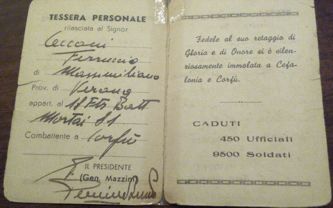 TESSERA PERSONALE
rilasciata al Signor
Cecconi
Ferruccio
di Massimiliano
Prov. di Verona
appart. al Btt
Mortai 81
Combattente a Corfù
IL PRESIDENTE
(Gen. Mazzini)
Fedele al suo retaggio di
Gloria e di Onore si è silen-
ziosamente immolata a Cefa-
lonia e Corfù.
CADUTI
450 Ufficiali
9500 Soldati